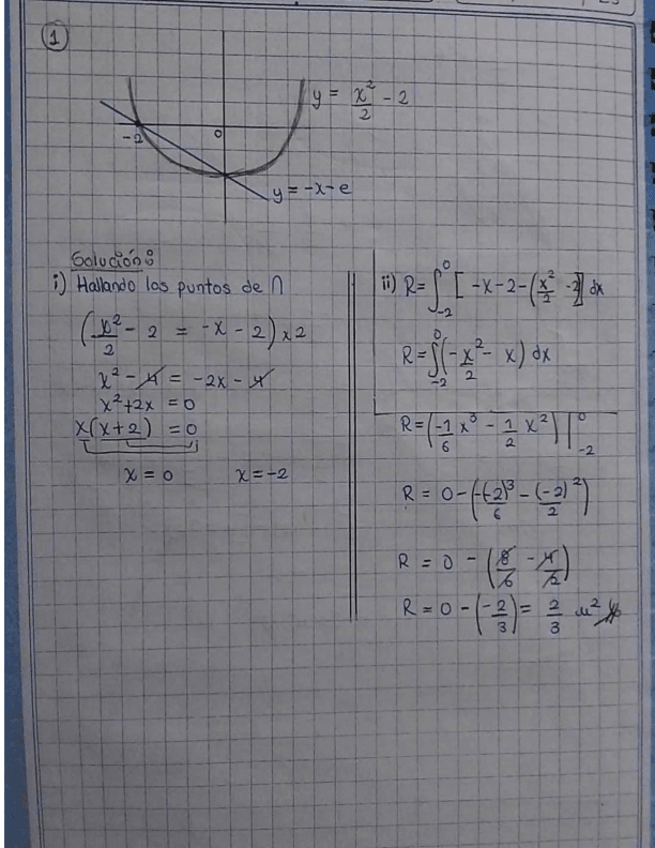 1
y = x²/2 - 2
-2
0
y = -x-e
Solución:
i) Hallando los puntos de ∩
(x²/2 - 2 = -x - 2) x2
x² - 4 = -2x - 4
x²+2x = 0
x(x+2) = 0
x = 0 x = -2
ii) R = ∫₋₂⁰ [ -x-2-(x²/2 -2] dx
R = ∫₋₂⁰ (-x²/2 - x) dx
R = (-1/6 x³ - 1/2 x²) |₋₂⁰
R = 0-(-(-2)³/6 - (-2)²/2)
R = 0 - (8/6 - 4/2)
R = 0 - (-2/3) = 2/3 u²